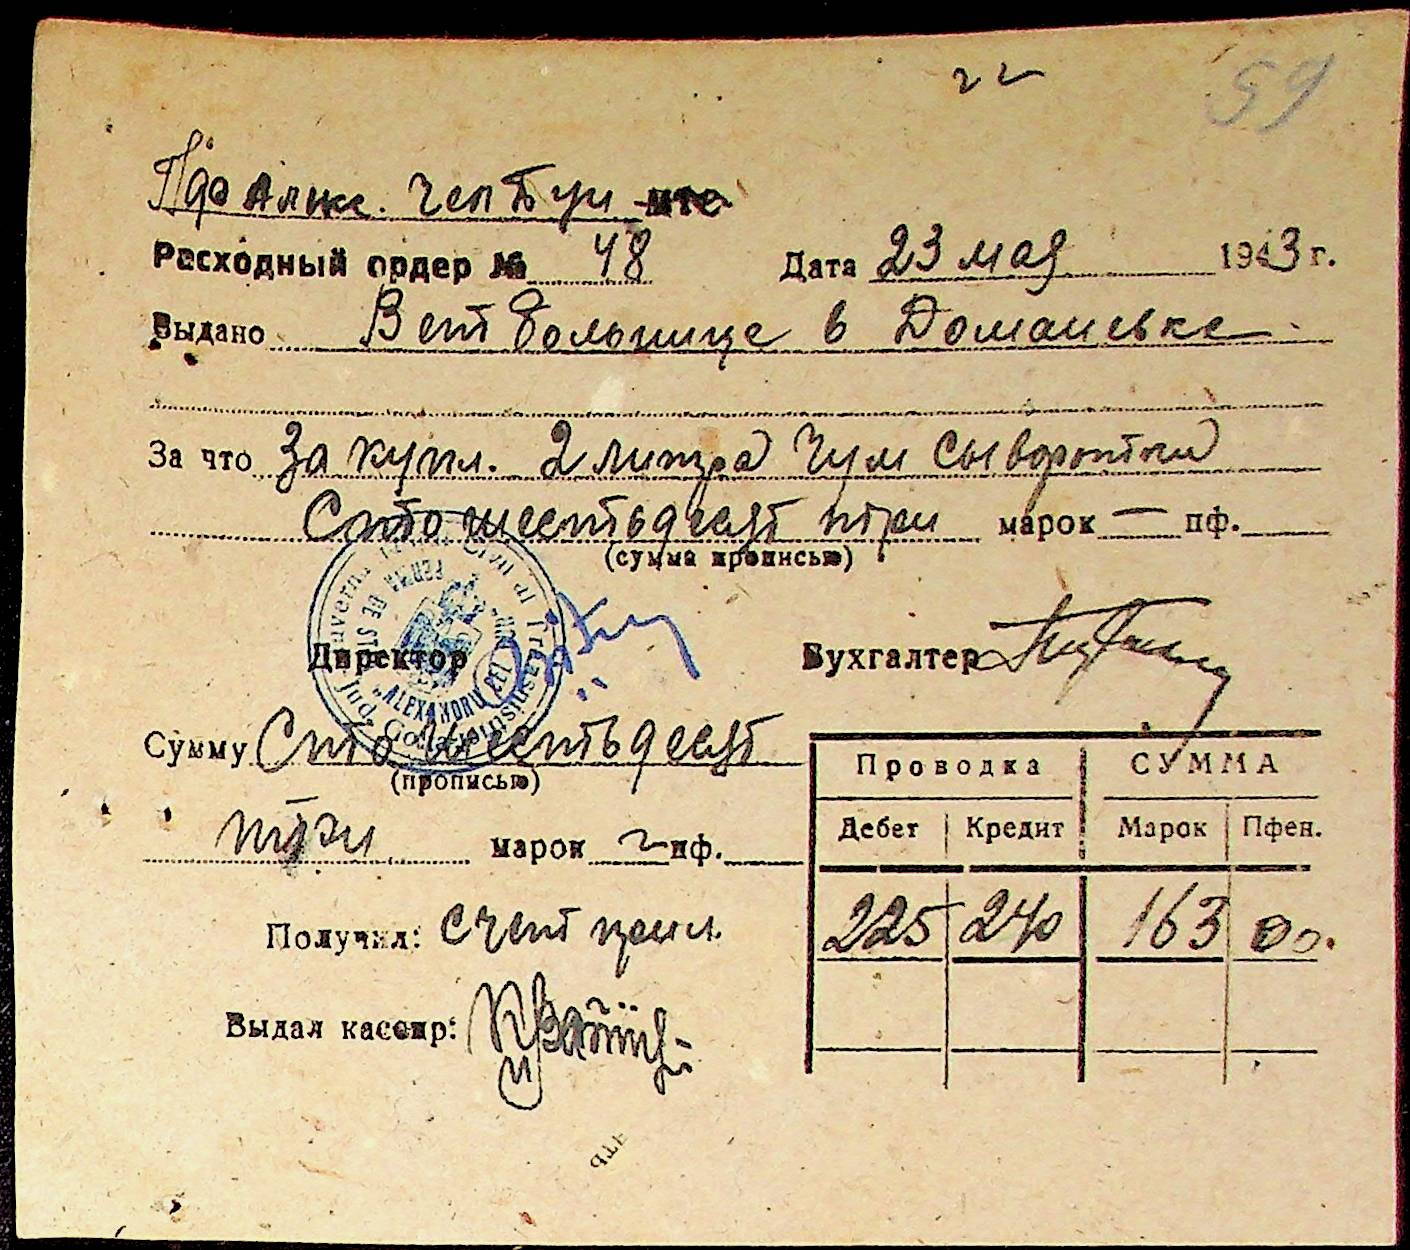 59
Расходный ордер № 48 Дата 23 мая 1943 г.
Выдано Вет больнице в Доманевке
За что За купл. 2 литра Чум сыворотки
Сто шестьдесят три марок — пф.
(сумма прописью)
Директор Бухгалтер
ALEXANDRU CEL
Сумму Сто шестьдесят
(прописью)
три марок пф.
Проводка СУММА
Дебет Кредит Марок Пфен.
225 240 163 00.
Получил: счет
Выдал кассир: